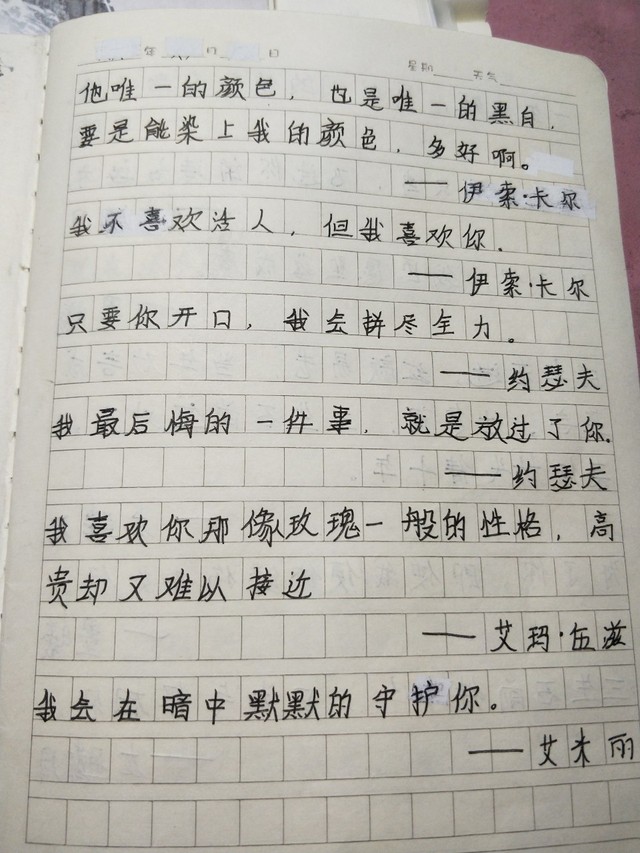 年 月 日
星期 天气
他唯一的颜色，也是唯一的黑白，
要是能染上我的颜色，多好啊。
——伊索·卡尔
我不喜欢活人，但我喜欢你.
——伊索·卡尔
只要你开口，我会拼尽全力。
——约瑟夫
我最后悔的一件事，就是放过了你.
——约瑟夫
我喜欢你那像玫瑰一般的性格，高
贵却又难以接近
——艾玛·伍滋
我会在暗中默默的守护你。
——艾米丽